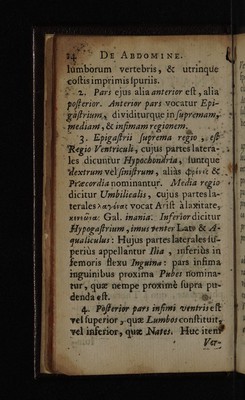 24 DE ABDOMINE.
lumborum vertebris, & utrinque
costis imprimis spuriis.
2. Pars ejus alia anterior est, alia
posterior. Anterior pars vocatur Epi-
gastrium, dividiturque in supremam,
mediam, & infimam regionem.
3. Epigastrii suprema regio, est
Regio Ventriculi, cujus partes latera-
les dicuntur Hypochondria, suntque
dextrum vel sinistrum, aliàs φρένες &
Præcordia nominantur. Media regio
dicitur Umbilicalis, cujus partes la-
terales λαγόνας vocat Arist à laxitate,
κενεῶνας Gal. inania. Inferior dicitur
Hypogastrium, imus venter Latè & A-
qualiculus: Hujus partes laterales su-
periùs appellantur Ilia, inferiùs in
femoris flexu Inguina: pars infima
inguinibus proxima Pubes nomina-
tur, quæ nempe proximè supra pu-
denda est.
4. Posterior pars infimi ventris est
vel superior, quæ Lumbos constituit,
vel inferior, quæ Nates. Huc item
Ver-